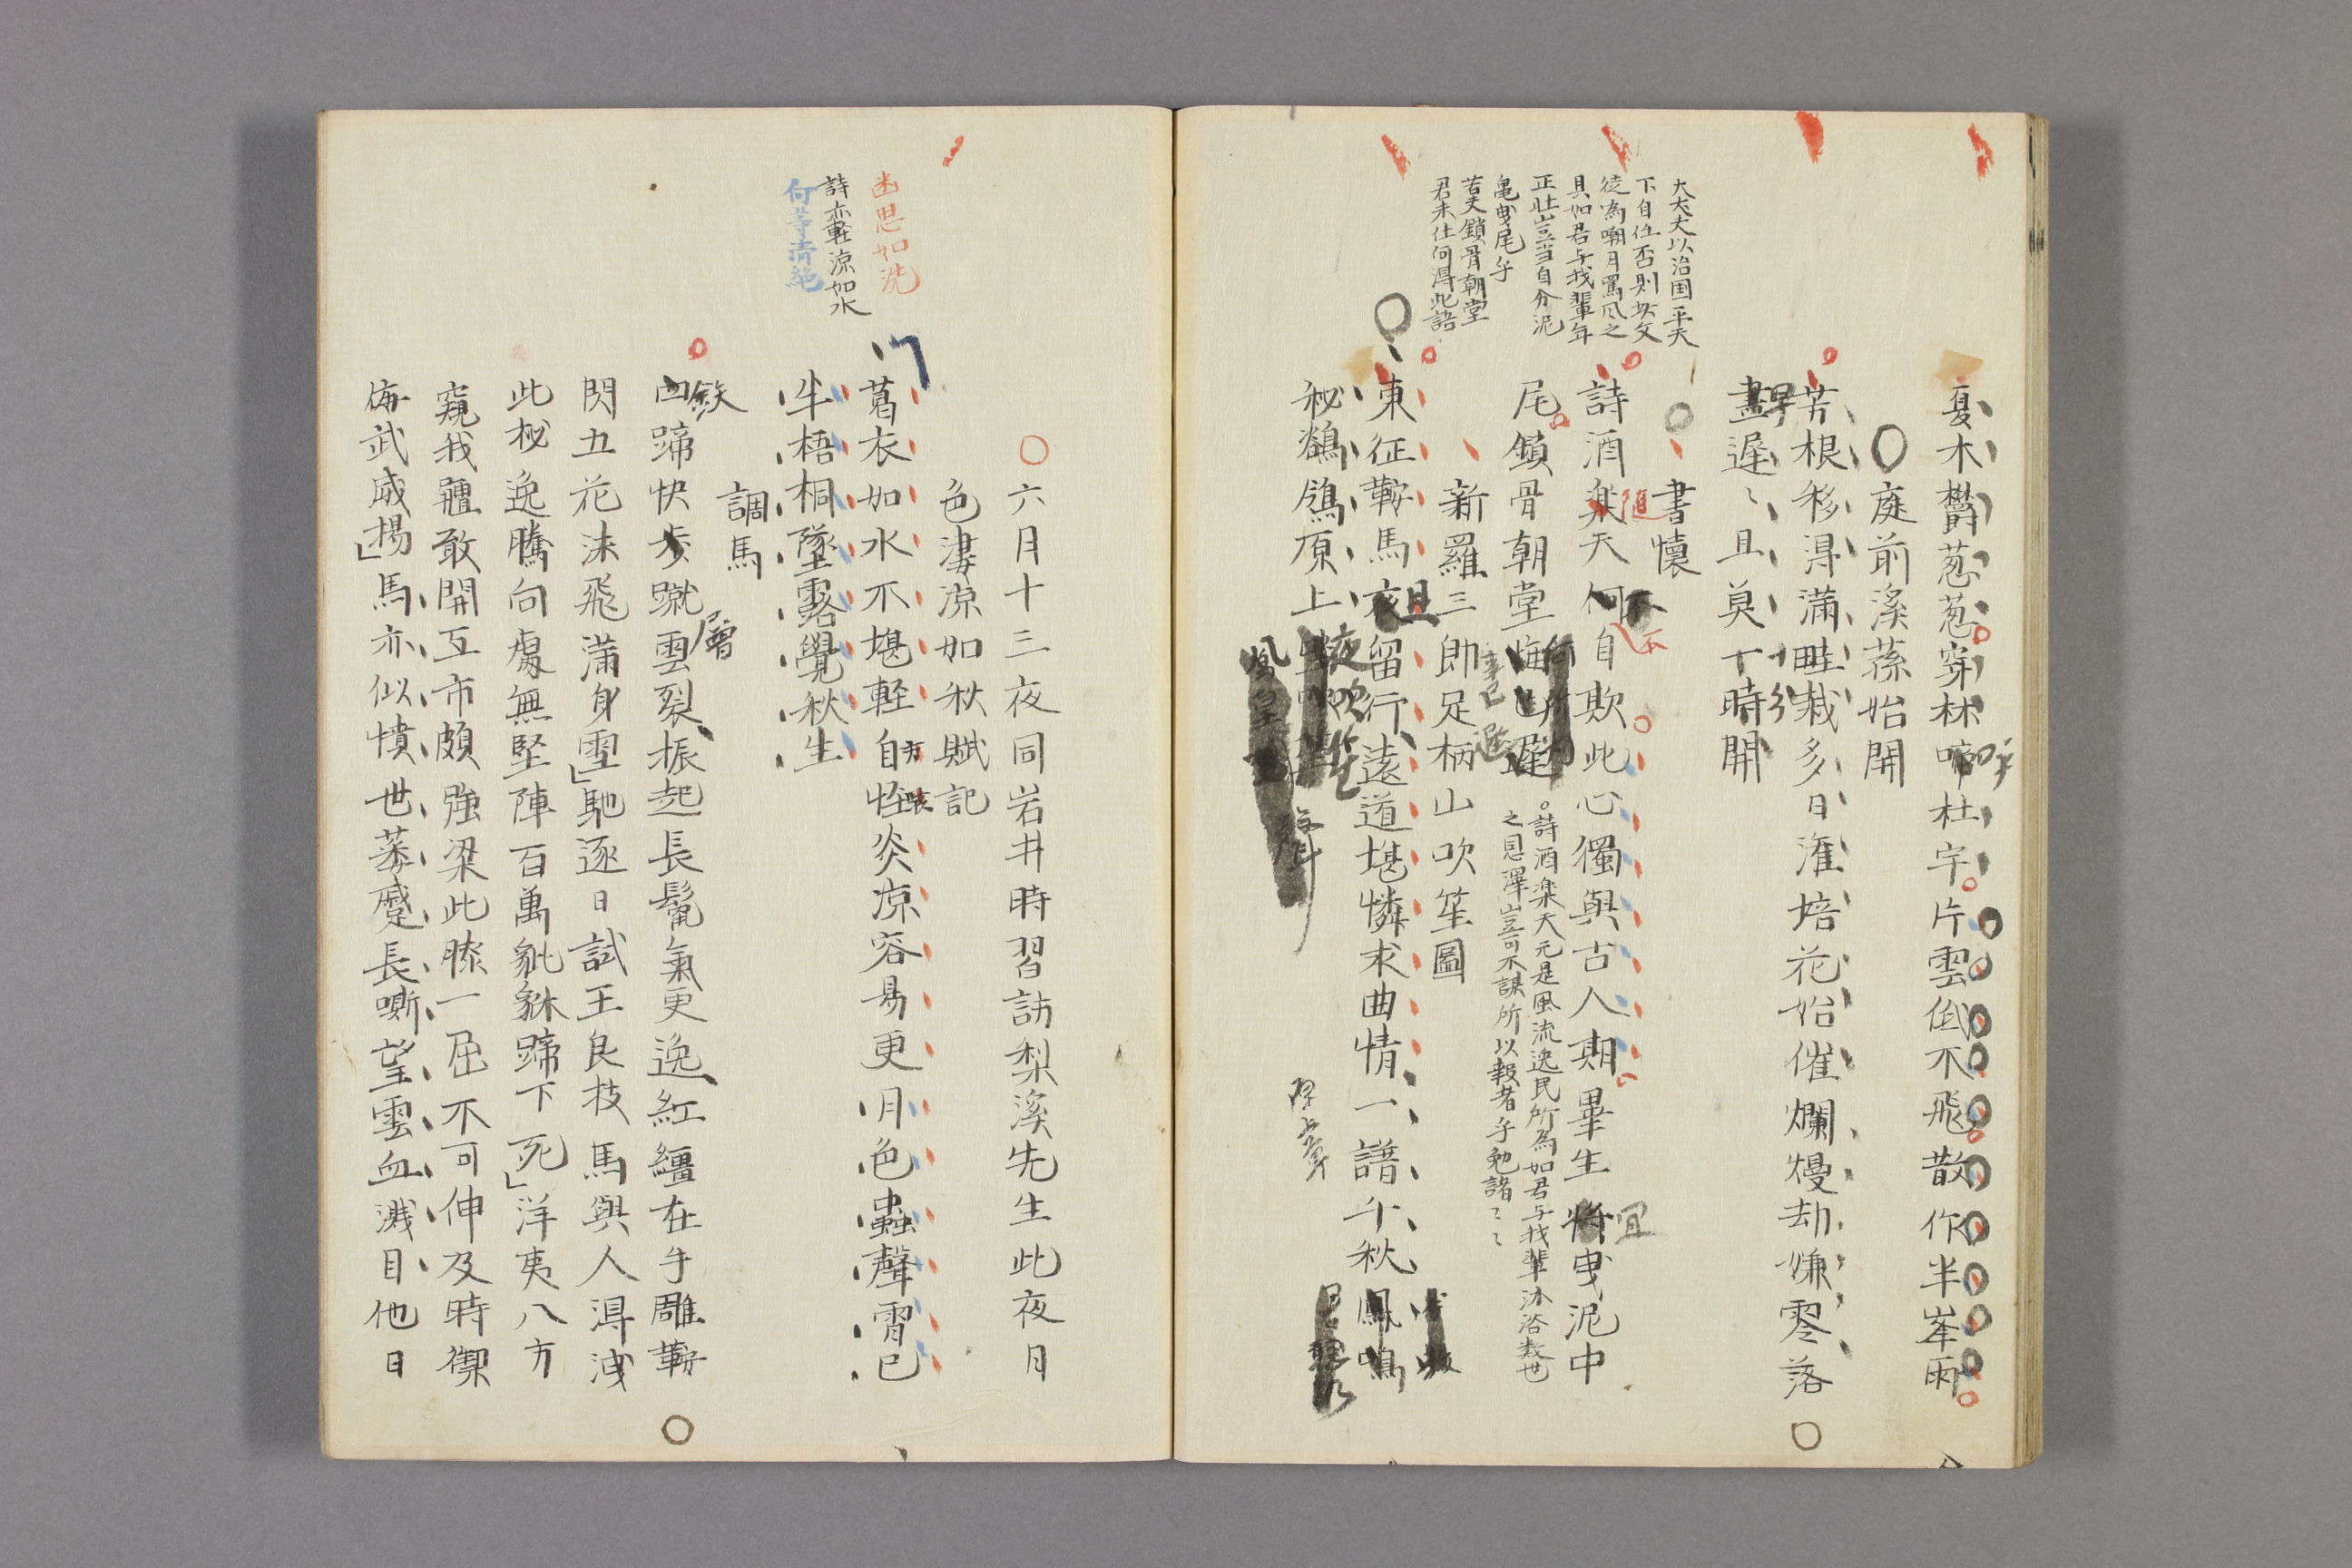 大丈夫以治国平天
下自任否則以文
徒為嘲月罵風之
具如君与我輩年
正壯豈当自分泥
亀曳尾乎
若夫鎖骨朝堂
君未仕何得此語
夏木欝葱葱穿林啼杜宇片雲低不飛散作半峯雨
呼
庭前溪蓀始開
芳根移得滿畦栽多日滙培花始催爛熳却嫌零落
早
盡遲〻且莫一時開
書懷
詩酒楽天何自欺此心獨與古人期畢生將曳泥中
随
不
不
宜
尾鎖骨朝堂悔已遲
何所
詩酒楽天元是風流逸民所為如君与我輩沐浴数世
之恩澤豈可不謀所以報者乎勉諸〻〻
新羅三郎足柄山吹笙圖
東征鞍馬夜留行遠道堪憐求曲情一譜千秋鳳鳴
且
秘鶺鴒原上
夜吹笙
六月十三夜同岩井時習訪梨溪先生此夜月
色凄凉如秋賦記
幽思如洗
詩亦軽凉如水
何等清絶
葛衣如水不堪軽自恠炎凉容易更月色蟲聲宵已
方
半梧桐墜露覺秋生
調馬
凹蹄快歩蹴雲裂振起長鬣氣更逸紅繮在手雕鞍
鉄
層
閃五花沫飛滿身雪馳逐日試王良技馬與人得洩
此松逸騰向處無堅陣百萬貔貅蹄下死洋夷八方
窺我疆敢開互市頗強梁此膝一屈不可伸及時禦
侮武威揚馬亦似憤世萎靡長嘶望雲血濺目他日